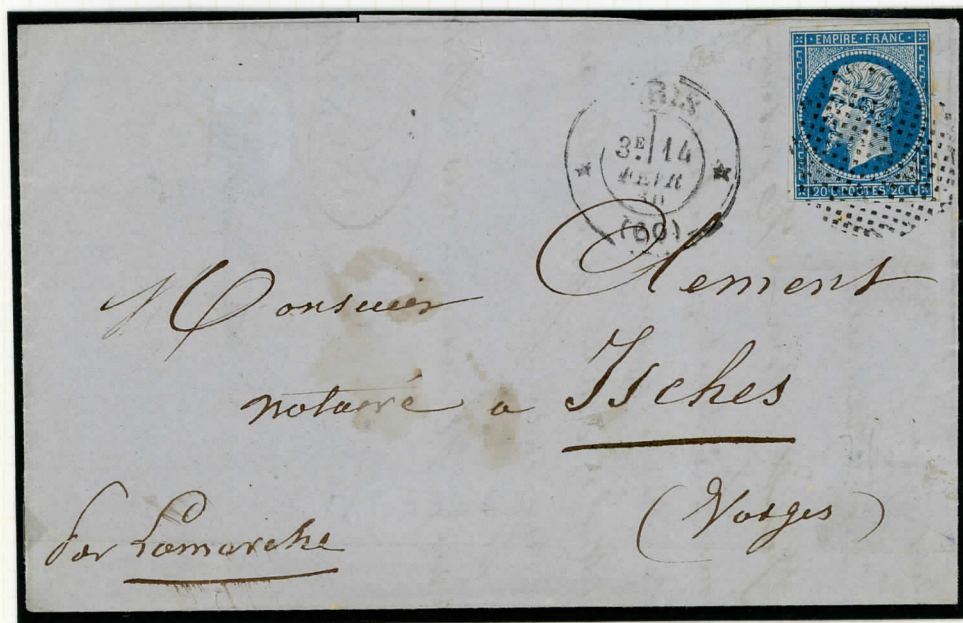 EMPIRE · FRANC ·
20 C POSTES 20 C
3E 14
FEVR
60
(60)
Monsieur Clement
notaire a Isches
(Vosges)
par Lamarche